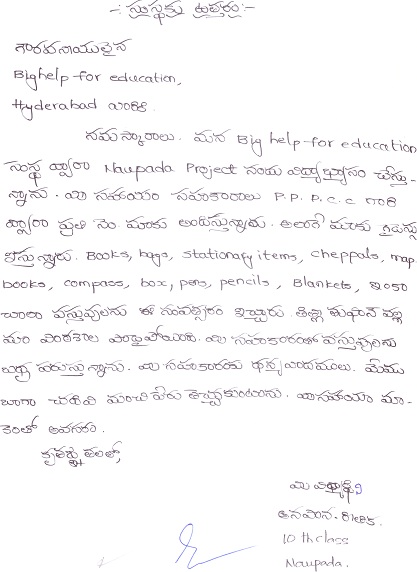 -: సంస్థకు ఉత్తరం:-
గౌరవనీయులైన
Bighelp for education,
Hyderabad వారికి.
నమస్కారాలు. మన Big help-for education
సంస్థ ద్వారా Naupada Project నందు విద్యాభ్యాసం చేస్తు-
న్నాను. మీ సహాయం సహకారాలు P.P.P.C.C గారి
ద్వారా ప్రతి నెల మాకు అందుస్తున్నాయి. అలాగే మాకు
ఇస్తున్నారు. Books, bags, stationary items, cheppals, map
books, compass, box, pens, pencils, Blankets, ఇంకా
చాలా వస్తువులను ఈ సంవత్సరం ఇచ్చారు. తిత్లీ తుఫాన్ వల్ల
మీ సహకారంతో వస్తువులను
మీ సహకారంకు ధన్యవాదములు. మేము
బాగా చదివి మంచి పేరు తెచ్చుకుంటాను. మీ సహాయం మా-
కెంతో అవసరం.
కృతజ్ఞతలతో,
మీ విద్యార్థి
10th class
Naupada.